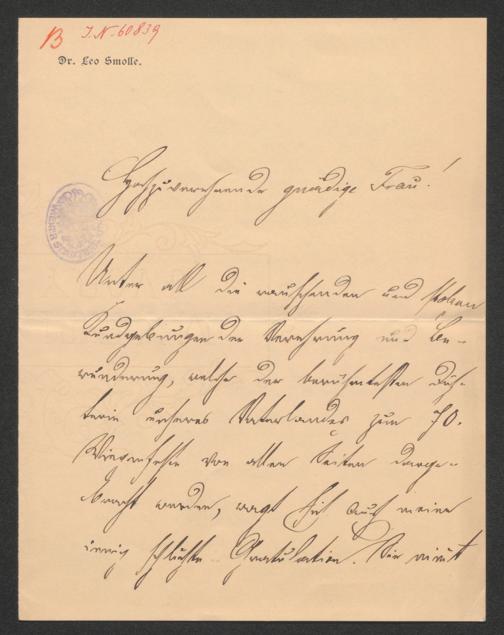 B
I.N. 60839
Dr. Leo Smolle.
Hochzuverehrende gnädige Frau!
Unter all die rauschenden und stolzen
Kundgebungen der Verehrung und Be-
wunderung, welche der berühmtesten Dich-
terin unseres Vaterlandes zum 70.
Wiegenfeste von allen Seiten darge-
bracht werden, wagt sich auch meine
innig schlichte Gratulation. Sie nimt